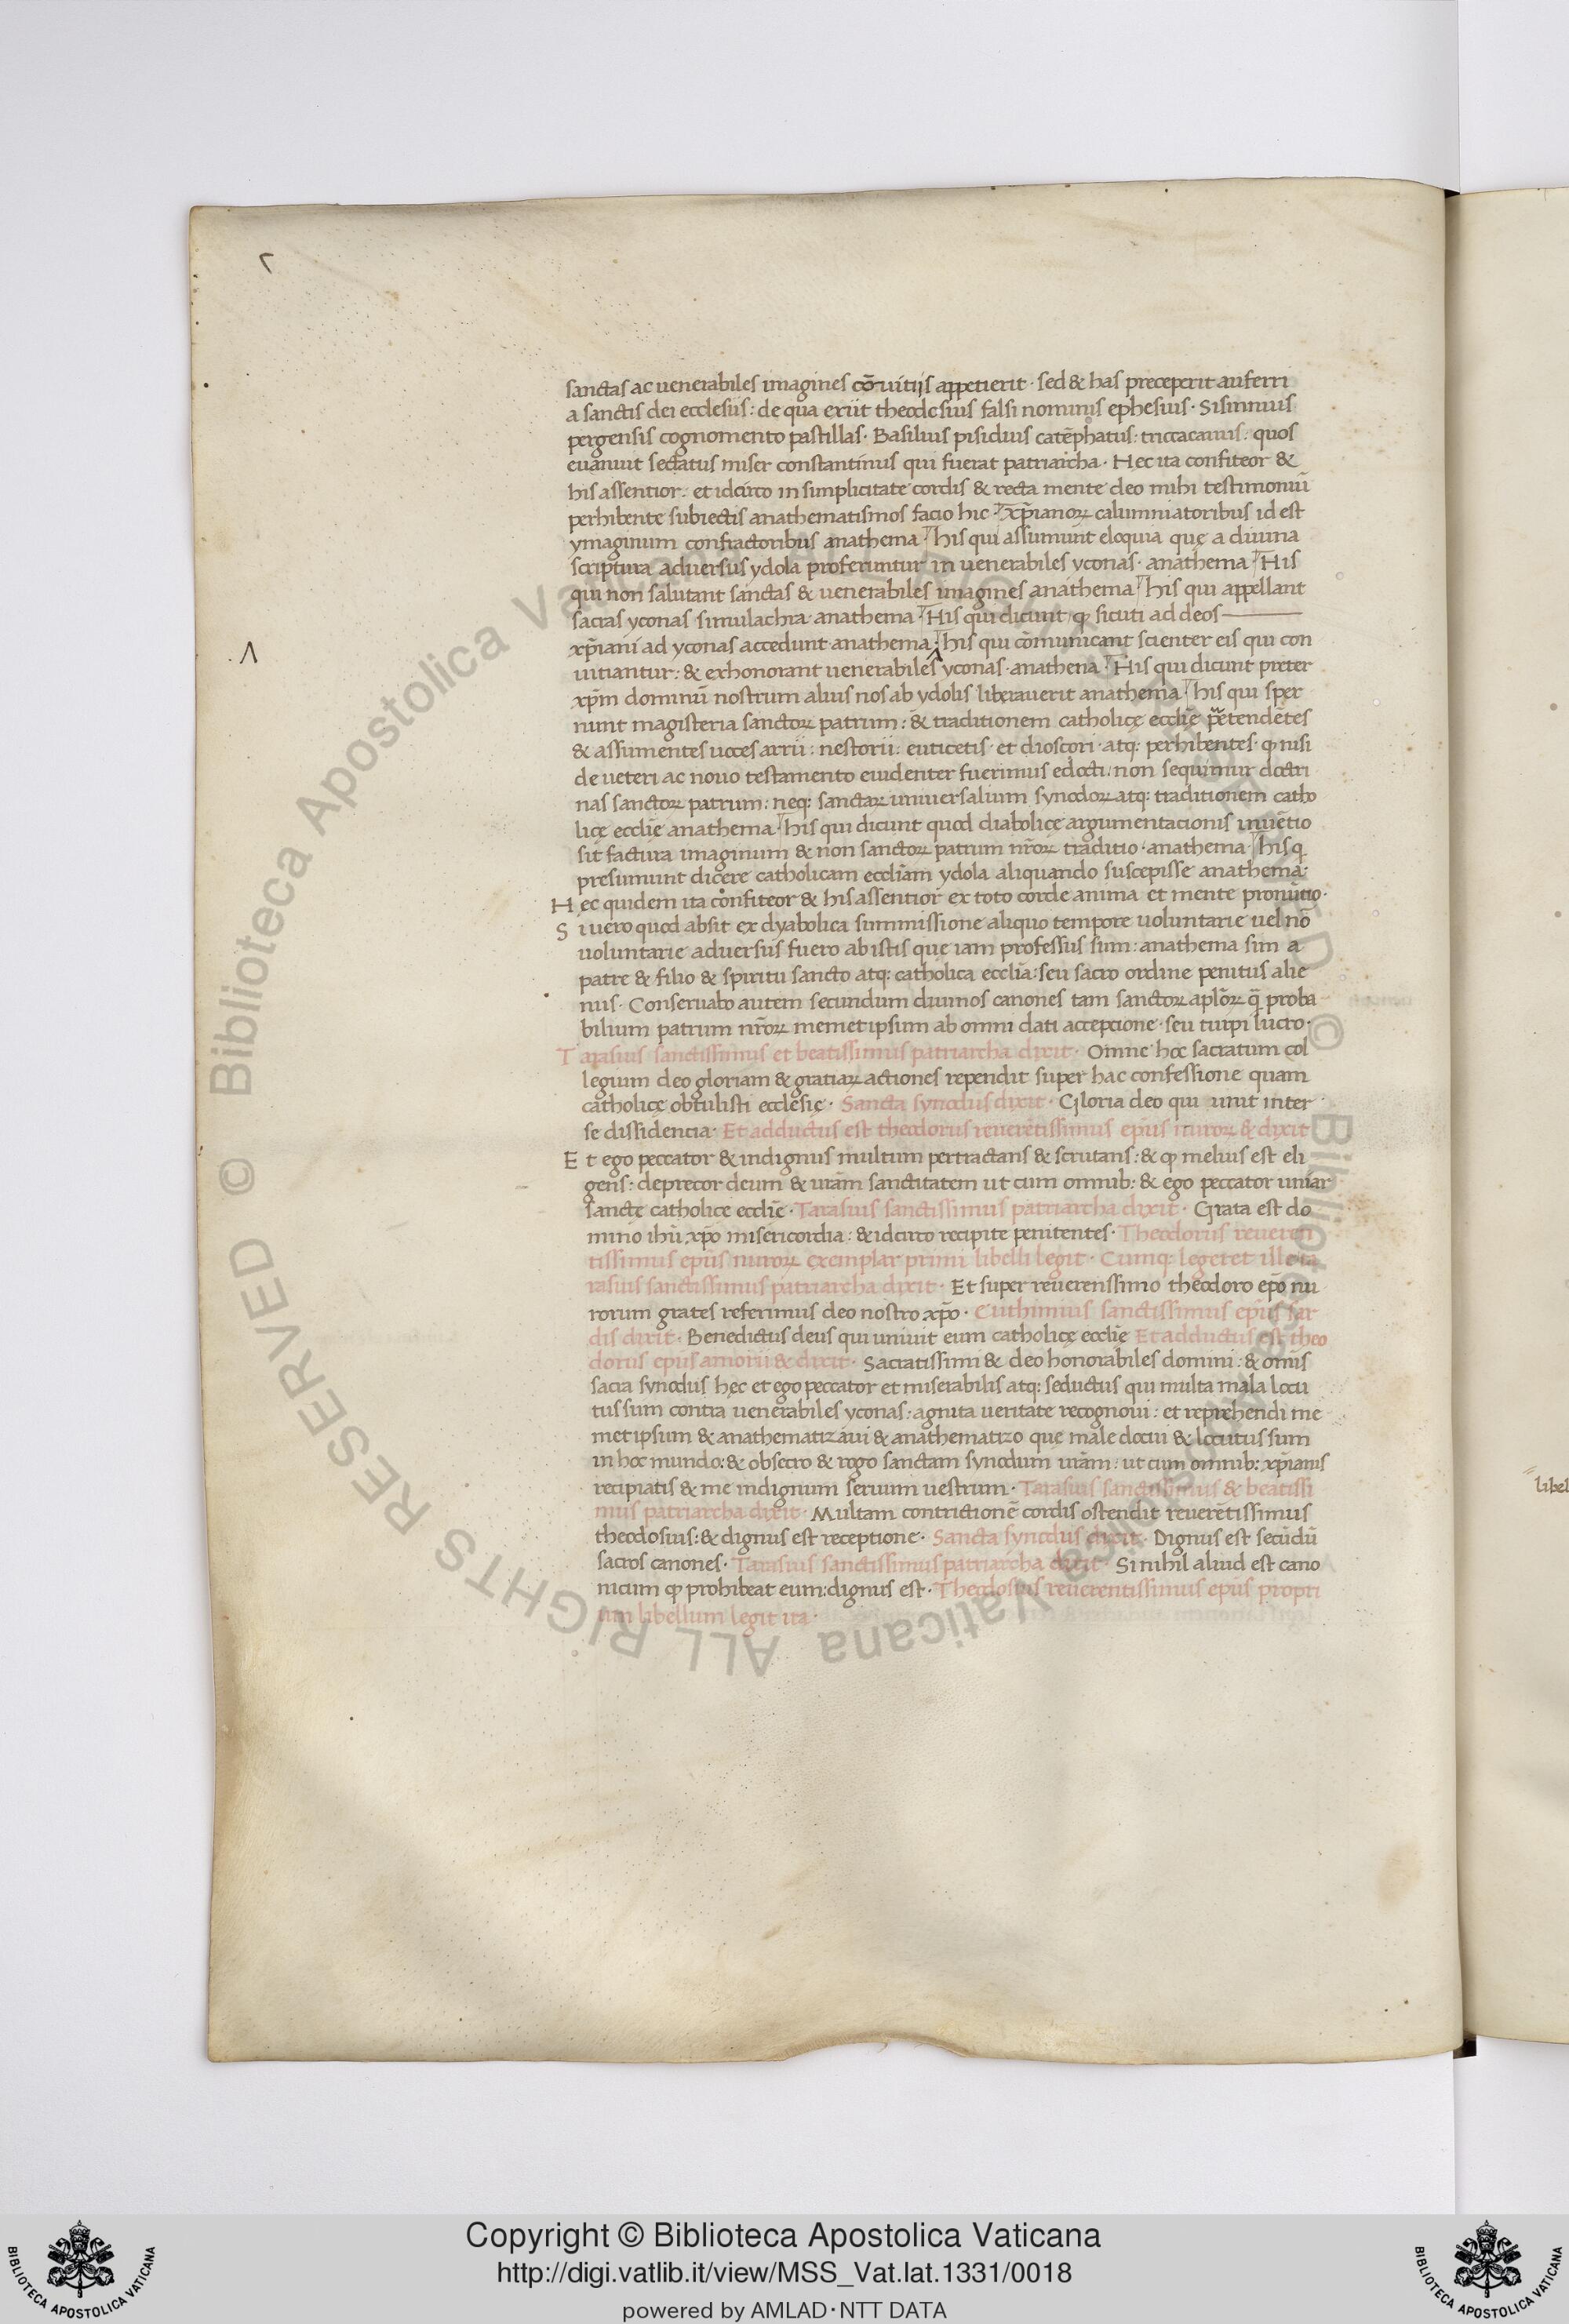 sanctas ac uenerabiles imagines cōuitijs appetierit · sed & has preceperit auferri
a sanctis dei ecclesiis: de qua exiit theodosius falsi nominis ephesius · Sisinnius
pergensis cognomento pastillas · Basilius pisidius catēphatus: triccacauus: quos
euanuit sectatus miser constantinus qui fuerat patriarcha · Hec ita confiteor &
his assentior: et idcirco in simplicitate cordis & recta mente deo mihi testimoniū
perhibente subiectis anathematismos facio hic · xp̄ianoꝝ calumniatoribus id est
ymaginum confractoribus anathema · his qui assumunt eloquia quę a diuina
scriptura aduersus ydola proferuntur in uenerabiles yconas · anathema · His
qui non salutant sanctas & uenerabiles imagines anathema · his qui appellant
sacras yconas simulachra · anathema · His qui dicunt ꝙ sicuti ad deos
xp̄iani ad yconas accedunt · anathema · his qui cōmunicant scienter eis qui con
uitiantur: & exhonorant uenerabiles yconas · anathena · His qui dicunt preter
xp̄m dominū nostrum alius nos ab ydolis liberauerit anathema · his qui sper
nunt magisteria sanctoꝝ patrum: & traditionem catholicę ecclīe p̄tendētes
& assumentes uoces arrii: nestorii: euticetis · et dioscori · atq: perhibentes · ꝙ nisi
de ueteri ac nouo testamento euidenter fuerimus edocti: non sequimur doctri
nas sanctoꝝ patrum: neq: sanctaꝝ uniuersalium synodoꝝ atq: traditionem catho
licę ecclīe anathema · his qui dicunt quod diabolicę argumentacionis inuētio
sit factura imaginum & non sanctoꝝ patrum nr̄oꝝ traditio · anathema · his q
presumunt dicere catholicam eccliam ydola aliquando suscepisse anathema·
Hec quidem ita confiteor & his assentior ex toto corde anima et mente pronūtio·
Si uero quod absit ex dyabolica summissione aliquo tempore uoluntarie uel nō
uoluntarie aduersus fuero ab istis quę iam professus sum: anathema sim a
patre & filio & spiritu sancto atq: catholica ecclīa: seu sacro ordine penitus alie
nus · Conseruabo autem secundum diuinos canones tam sanctoꝝ aplōꝝ q̄ proba
bilium patrum nr̄oꝝ memetipsum ab omni dati accepcione · seu turpi lucro·
Tarasius sanctissimus et beatissimus patriarcha dixit · Omne hoc sacratum col
legium deo gloriam & gratiaꝝ actiones rependit super hac confessione quam
catholicę obtulisti ecclesię · Sancta synodus dixit · Gloria deo qui unit inter
se dissidencia · Et adductus est theodorus reuerētissimus ep̄us miroꝝ & dixit
Et ego peccator & indignus multum pertractans & scrutans: & ꝙ melius est eli
gens: deprecor deum & ur̄am sanctitatem ut cum omnib: & ego peccator uniar
sanctę catholice ecclīe · Tarasius sanctissimus patriarcha dixit · Grata est do
mino ihū xp̄o misericordia: & idcirco recipite penitentes · Theodorus reueren
tissimus ep̄us miroꝝ exemplar primi libelli legit · Cumq: legeret ille ta
rasius sanctissimus patriarcha dixit · Et super reuerenssimo theodoro ep̄o mi
rorum grates referimus deo nostro xp̄o · Euthimius sanctissimus ep̄us sar
dis dixit · Benedictus deus qui uniuit eum catholicę ecclīe Et adductus est theo
dorus ep̄us amorii & dixit · Sacratissimi & deo honorabiles domini: & om̄is
sacra synodus hęc et ego peccator et miserabilis atq: seductus qui multa mala locu
tus sum contra uenerabiles yconas: agnita ueritate recognoui: et reprehendi me
metipsum & anathematizaui & anathematizo quę male docui & locutus sum
in hoc mundo: & obsecro & rogo sanctam synodum ur̄am: ut cum omnib: xp̄ianis
recipiatis & me indignum seruum uestrum · Tarasius sanctissimus & beatissi
mus patriarcha dixit · Multam contrictionē cordis ostendit reuerētissimus
theodosius: & dignus est receptione · Sancta synodus dixit · Dignus est secūdū
sacros canones · Tarasius sanctissimus patriarcha dixit · Si nihil aliud est cano
nicum ꝙ prohibeat eum: dignus est · Theodosius reuerentissimus ep̄us propri
um libellum legit ita ·
libel
© Biblioteca Apostolica Vaticana ALL RIGHTS RESERVED
Copyright © Biblioteca Apostolica Vaticana
http://digi.vatlib.it/view/MSS_Vat.lat.1331/0018
powered by AMLAD·NTT DATA
BIBLIOTECA APOSTOLICA VATICANA
BIBLIOTECA APOSTOLICA VATICANA